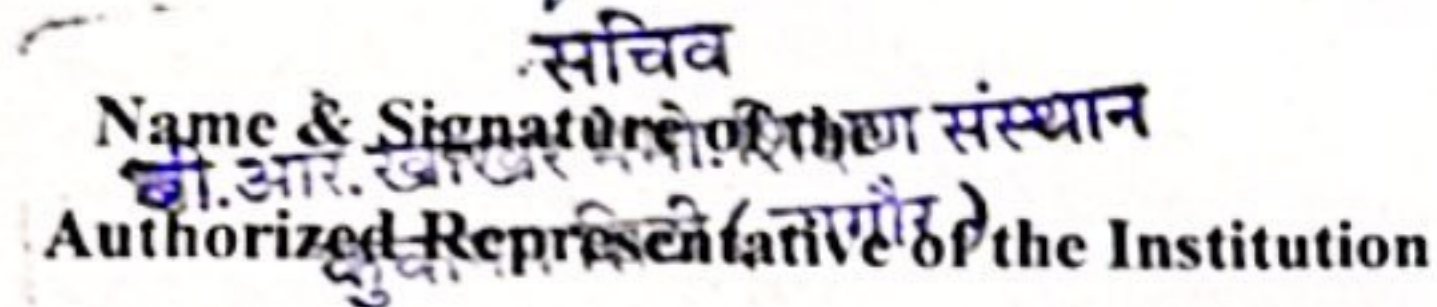 सचिव
Name & Signature of the
बी.आर. खोखर मेमो. शिक्षण संस्थान
Authorized Representative of the Institution
(नागौर)